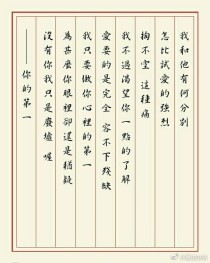 我和他有何分別
怎比試愛的強烈
掏不空 這種痛
我不過渴望你一點的了解
愛要的是完全 容不下殘缺
我只要做你心裡的第一
為甚麼你眼裡卻還是猶疑
沒有你我只是廢墟喔
——你的第一